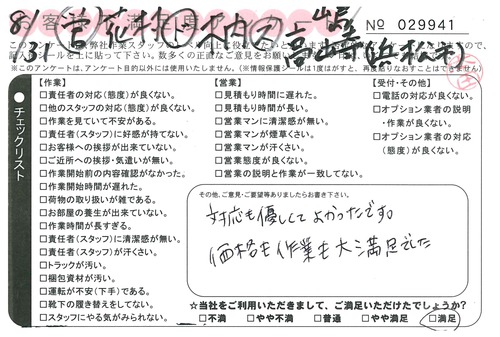 № 029941
※このアンケートは、アンケート目的以外には使用いたしません。(※情報保護シールは1度はがすと、再度貼りなおすことはできません)
●チェックリスト
【作業】
□責任者の対応(態度)が良くない。
□他のスタッフの対応(態度)が良くない。
□作業を見ていて不安がある。
□責任者(スタッフ)に好感が持てない。
□お客様への挨拶が出来ていない。
□ご近所への挨拶・気遣いが無い。
□作業開始前の内容確認がなかった。
□作業開始時間が遅れた。
□荷物の取り扱いが雑である。
□お部屋の養生が出来ていない。
□作業時間が長すぎる。
□責任者(スタッフ)に清潔感が無い。
□責任者(スタッフ)が汗くさい。
□トラックが汚い。
□梱包資材が汚い。
□運転が不安(下手)である。
□靴下の履き替えをしてない。
□スタッフにやる気がみられない。
【営業】
□見積もり時間に遅れた。
□見積もり時間が長い。
□営業マンに清潔感が無い。
□営業マンが煙草くさい。
□営業マンが汗くさい。
□営業態度が良くない。
□営業の説明と作業が一致してない。
【受付・その他】
□電話の対応が良くない。
□オプション業者の説明
・作業が良くない。
□オプション業者の対応
(態度)が良くない。
その他、ご意見・ご要望等ありましたらお書き下さい。
対応も優しくてよかったです。
価格も作業も大満足でした
☆当社をご利用いただきまして、ご満足いただけたでしょうか?
□不満 □やや不満 □普通 □やや満足 □満足